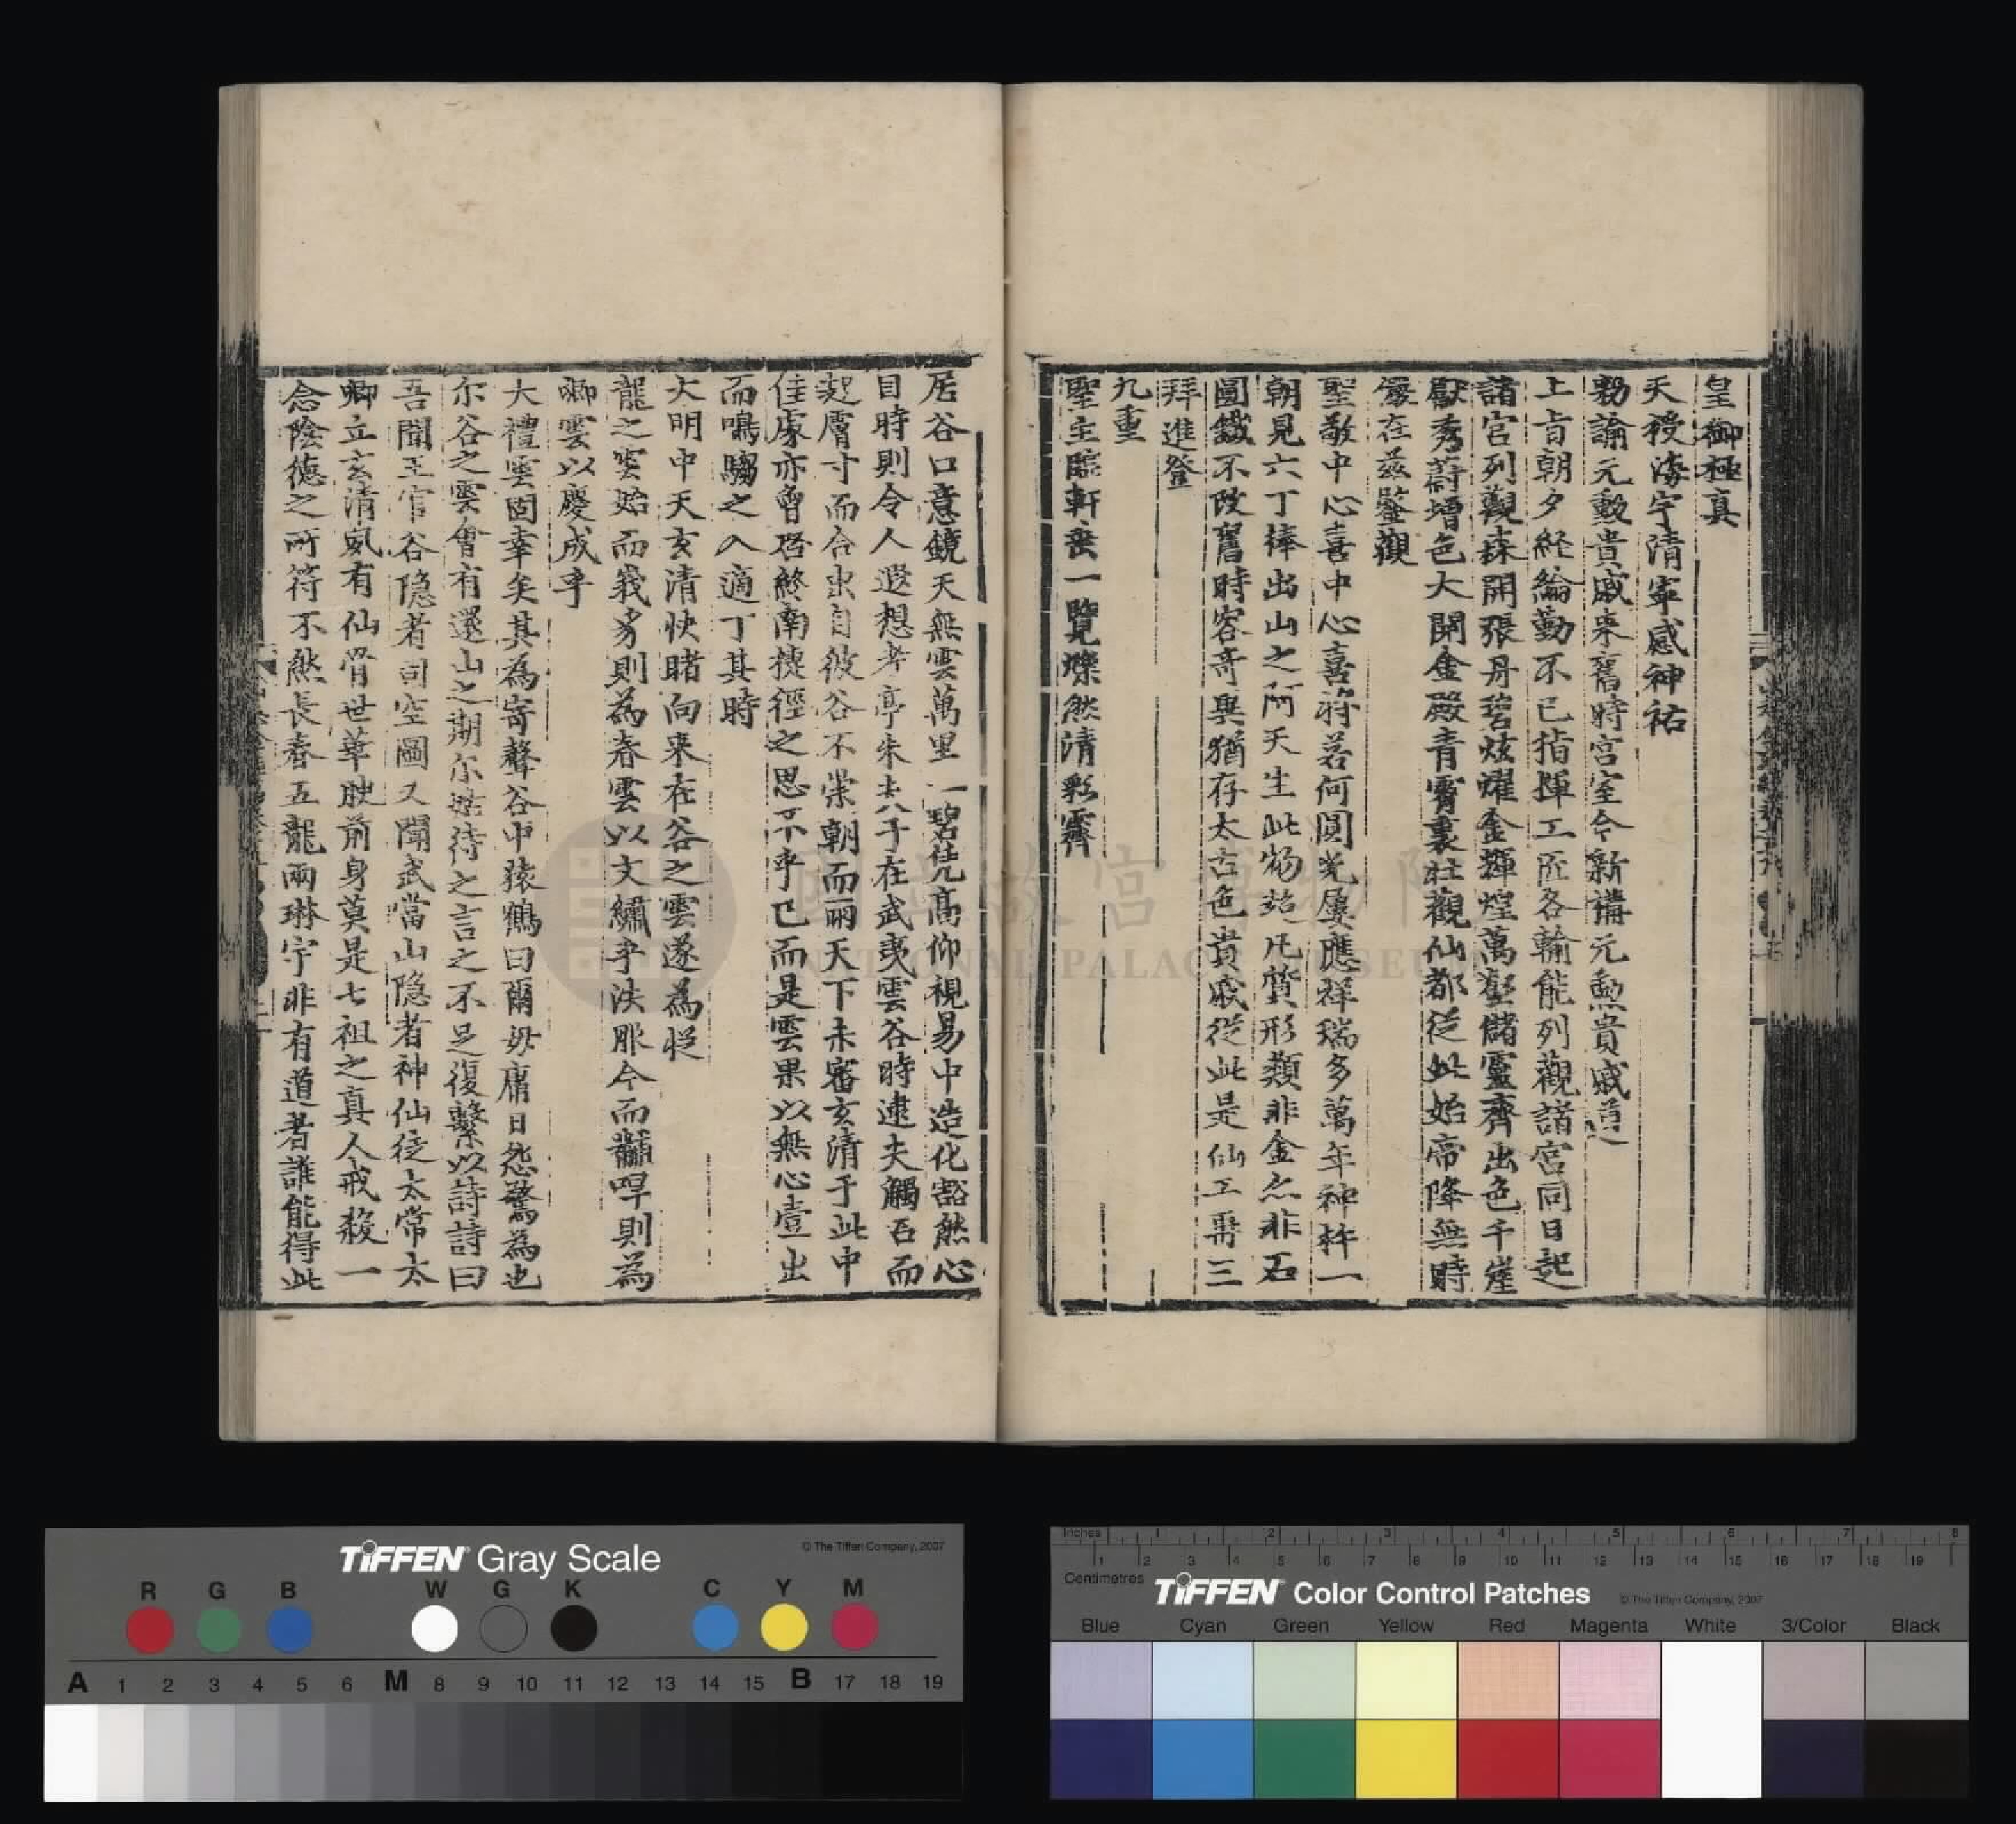 皇御極真
天授海宇清寧感神祐
勑諭元勳貴戚来舊時宮室今新講元勳貴戚遵
上旨朝夕経綸勤不已指揮工匠各輸能列觀諸宮同日起
諸宮列觀森開張丹碧炫燿金輝煌萬壑儲靈齊出色千崖
獻秀蔚增色大開金殿青霄裏壯觀仙都從此始帝降無時
儼在兹鑒觀
聖敬中心喜中心喜將若何圓光屢應祥瑞多萬年神杵一
朝見六丁捧出山之阿天生此物超凡質形類非金亦非石
圓鐵不改舊時容奇與猶存太古色貴戚從此是仙工再三
拜進登
九重
聖主臨軒喪一覽燦然清彩霽
居谷口意鏡天無雲萬里一碧凭高仰視易中造化豁然心
目時則令人遐想考亭朱夫子在武夷雲谷時逮夫觸石而
起膚寸而合出自彼谷不崇朝而雨天下未審玄清于此中
佳處亦曾啓終南捷徑之思不乎已而是雲果以無心壹出
而鳴騶之入適丁其時
大明中天玄清快睹向来在谷之雲遂為從
龍之雲始而峩豸則為春雲以文繡乎法服今而黼咢則為
卿雲以慶成乎
大禮雲固幸矣其為寄聲谷中猿鶴曰爾毋庸日怨驚為也
尔谷之雲會有還山之期尔姑待之言之不足復繫以詩詩曰
吾聞王官谷隐者司空圖又聞武當山隐者神仙徒太常太
卿立玄清夙有仙骨世華腴前身莫是七祖之真人戒殺一
念陰德之所符不然長春五龍兩琳宇非有道者誰能得此
TIFFEN Gray Scale
© The Tiffen Company, 2007
R G B W G K C Y M
A 1 2 3 4 5 6 M 8 9 10 11 12 13 14 15 B 17 18 19
Inches 1 2 3 4 5 6 7 8
1 2 3 4 5 6 7 8 9 10 11 12 13 14 15 16 17 18 19
Centimetres
TIFFEN Color Control Patches
© The Tiffen Company, 2007
Blue Cyan Green Yellow Red Magenta White 3/Color Black
國立故宮博物院
NATIONAL PALACE MUSEUM